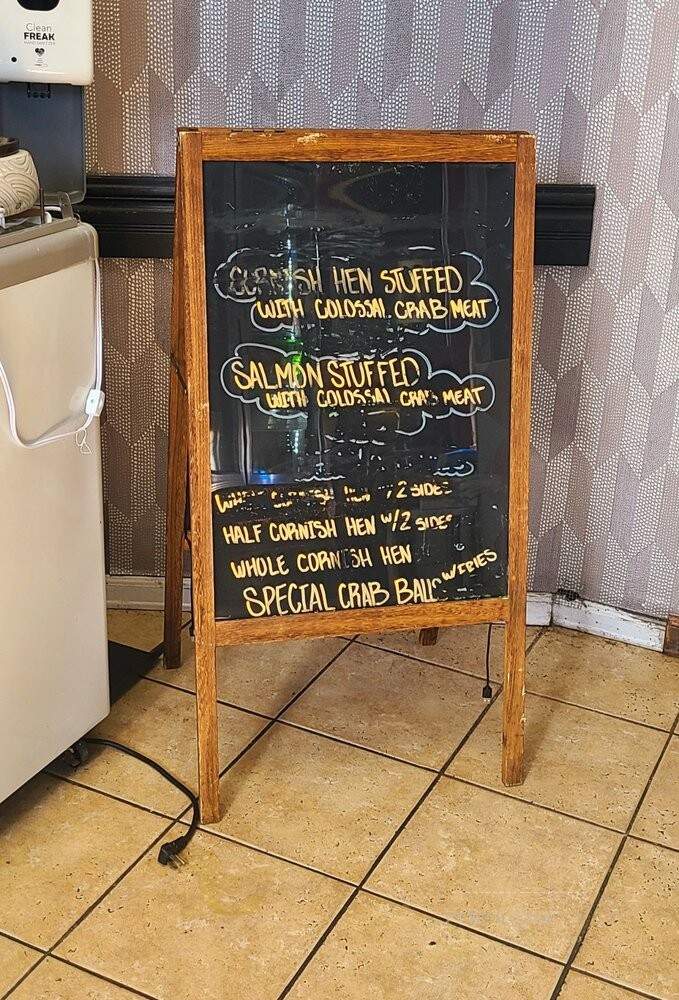 Clean
FREAK
HAND SANITIZER
CORNISH HEN STUFFED
WITH COLOSSAL CRAB MEAT
SALMON STUFFED
WITH COLOSSAL CRAB MEAT
WHOLE CORNISH HEN W/2 SIDES
HALF CORNISH HEN W/2 SIDES
WHOLE CORNISH HEN
SPECIAL CRAB BALLS W/FRIES